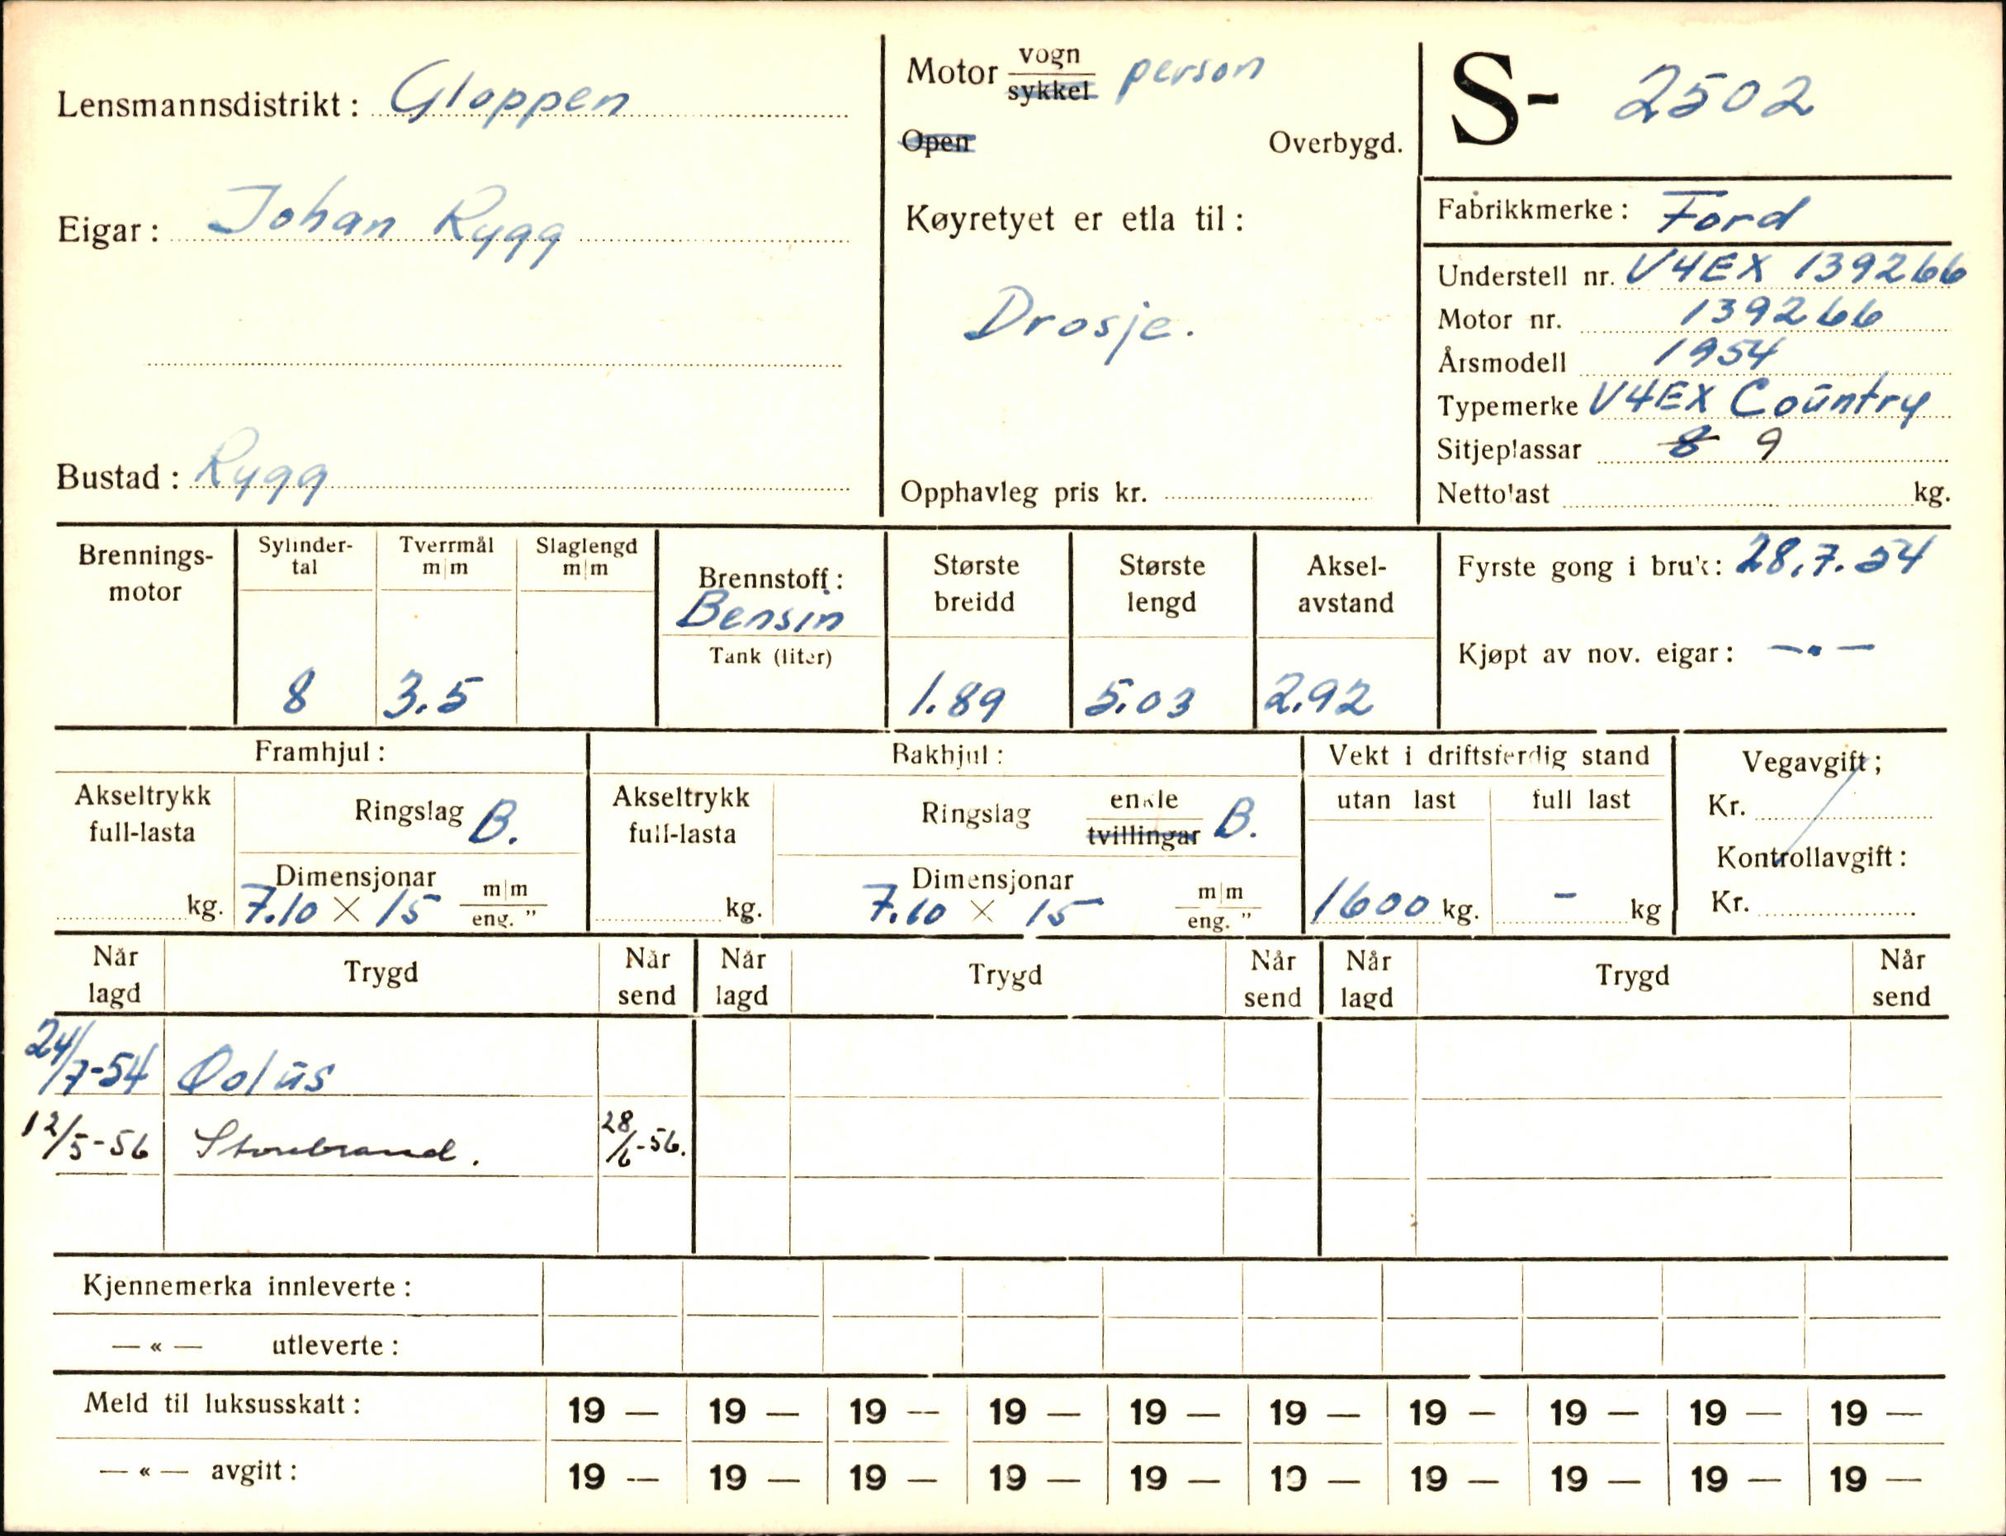 Lensmannsdistrikt: Gloppen
Motor vogn person
sykkel
S- 2502
Open Overbygd.
Eigar: Johan Rygg
Køyretyet er etla til:
Drosje.
Bustad: Rygg
Opphavleg pris kr.
Fabrikkmerke: Ford
Understell nr. V4EX 139266
Motor nr. 139266
Årsmodell 1954
Typemerke V4EX Country
Sitjeplassar 8 9
Nettolast kg.
Brennings-
motor
Sylinder-
tal
8
Tverrmål
m/m
3.5
Slaglengd
m/m
Brennstoff:
Bensin
Tank (liter)
Største
breidd
1.89
Største
lengd
5.03
Aksel-
avstand
2.92
Fyrste gong i bruk: 28.7.54
Kjøpt av nov. eigar: —"—
Framhjul:
Akseltrykk
full-lasta
kg.
Ringslag B.
Dimensjonar
7.10 × 15 m/m
eng. "
Bakhjul:
Akseltrykk
full-lasta
kg.
Ringslag enkle
tvillingar B.
Dimensjonar
7.10 × 15 m/m
eng. "
Vekt i driftsferdig stand
utan last full last
1600 kg. - kg
Vegavgift;
Kr.
Kontrollavgift:
Kr.
Når
lagd Trygd Når
send Når
lagd Trygd Når
send Når
lagd Trygd Når
send
24/7-54 Æolus
12/5-56 Storebrand. 28/6-56.
Kjennemerka innleverte:
— « — utleverte:
Meld til luksusskatt: 19 — 19 — 19 — 19 — 19 — 19 — 19 — 19 — 19 — 19 —
— « — avgift: 19 — 19 — 19 — 19 — 19 — 19 — 19 — 19 — 19 — 19 —